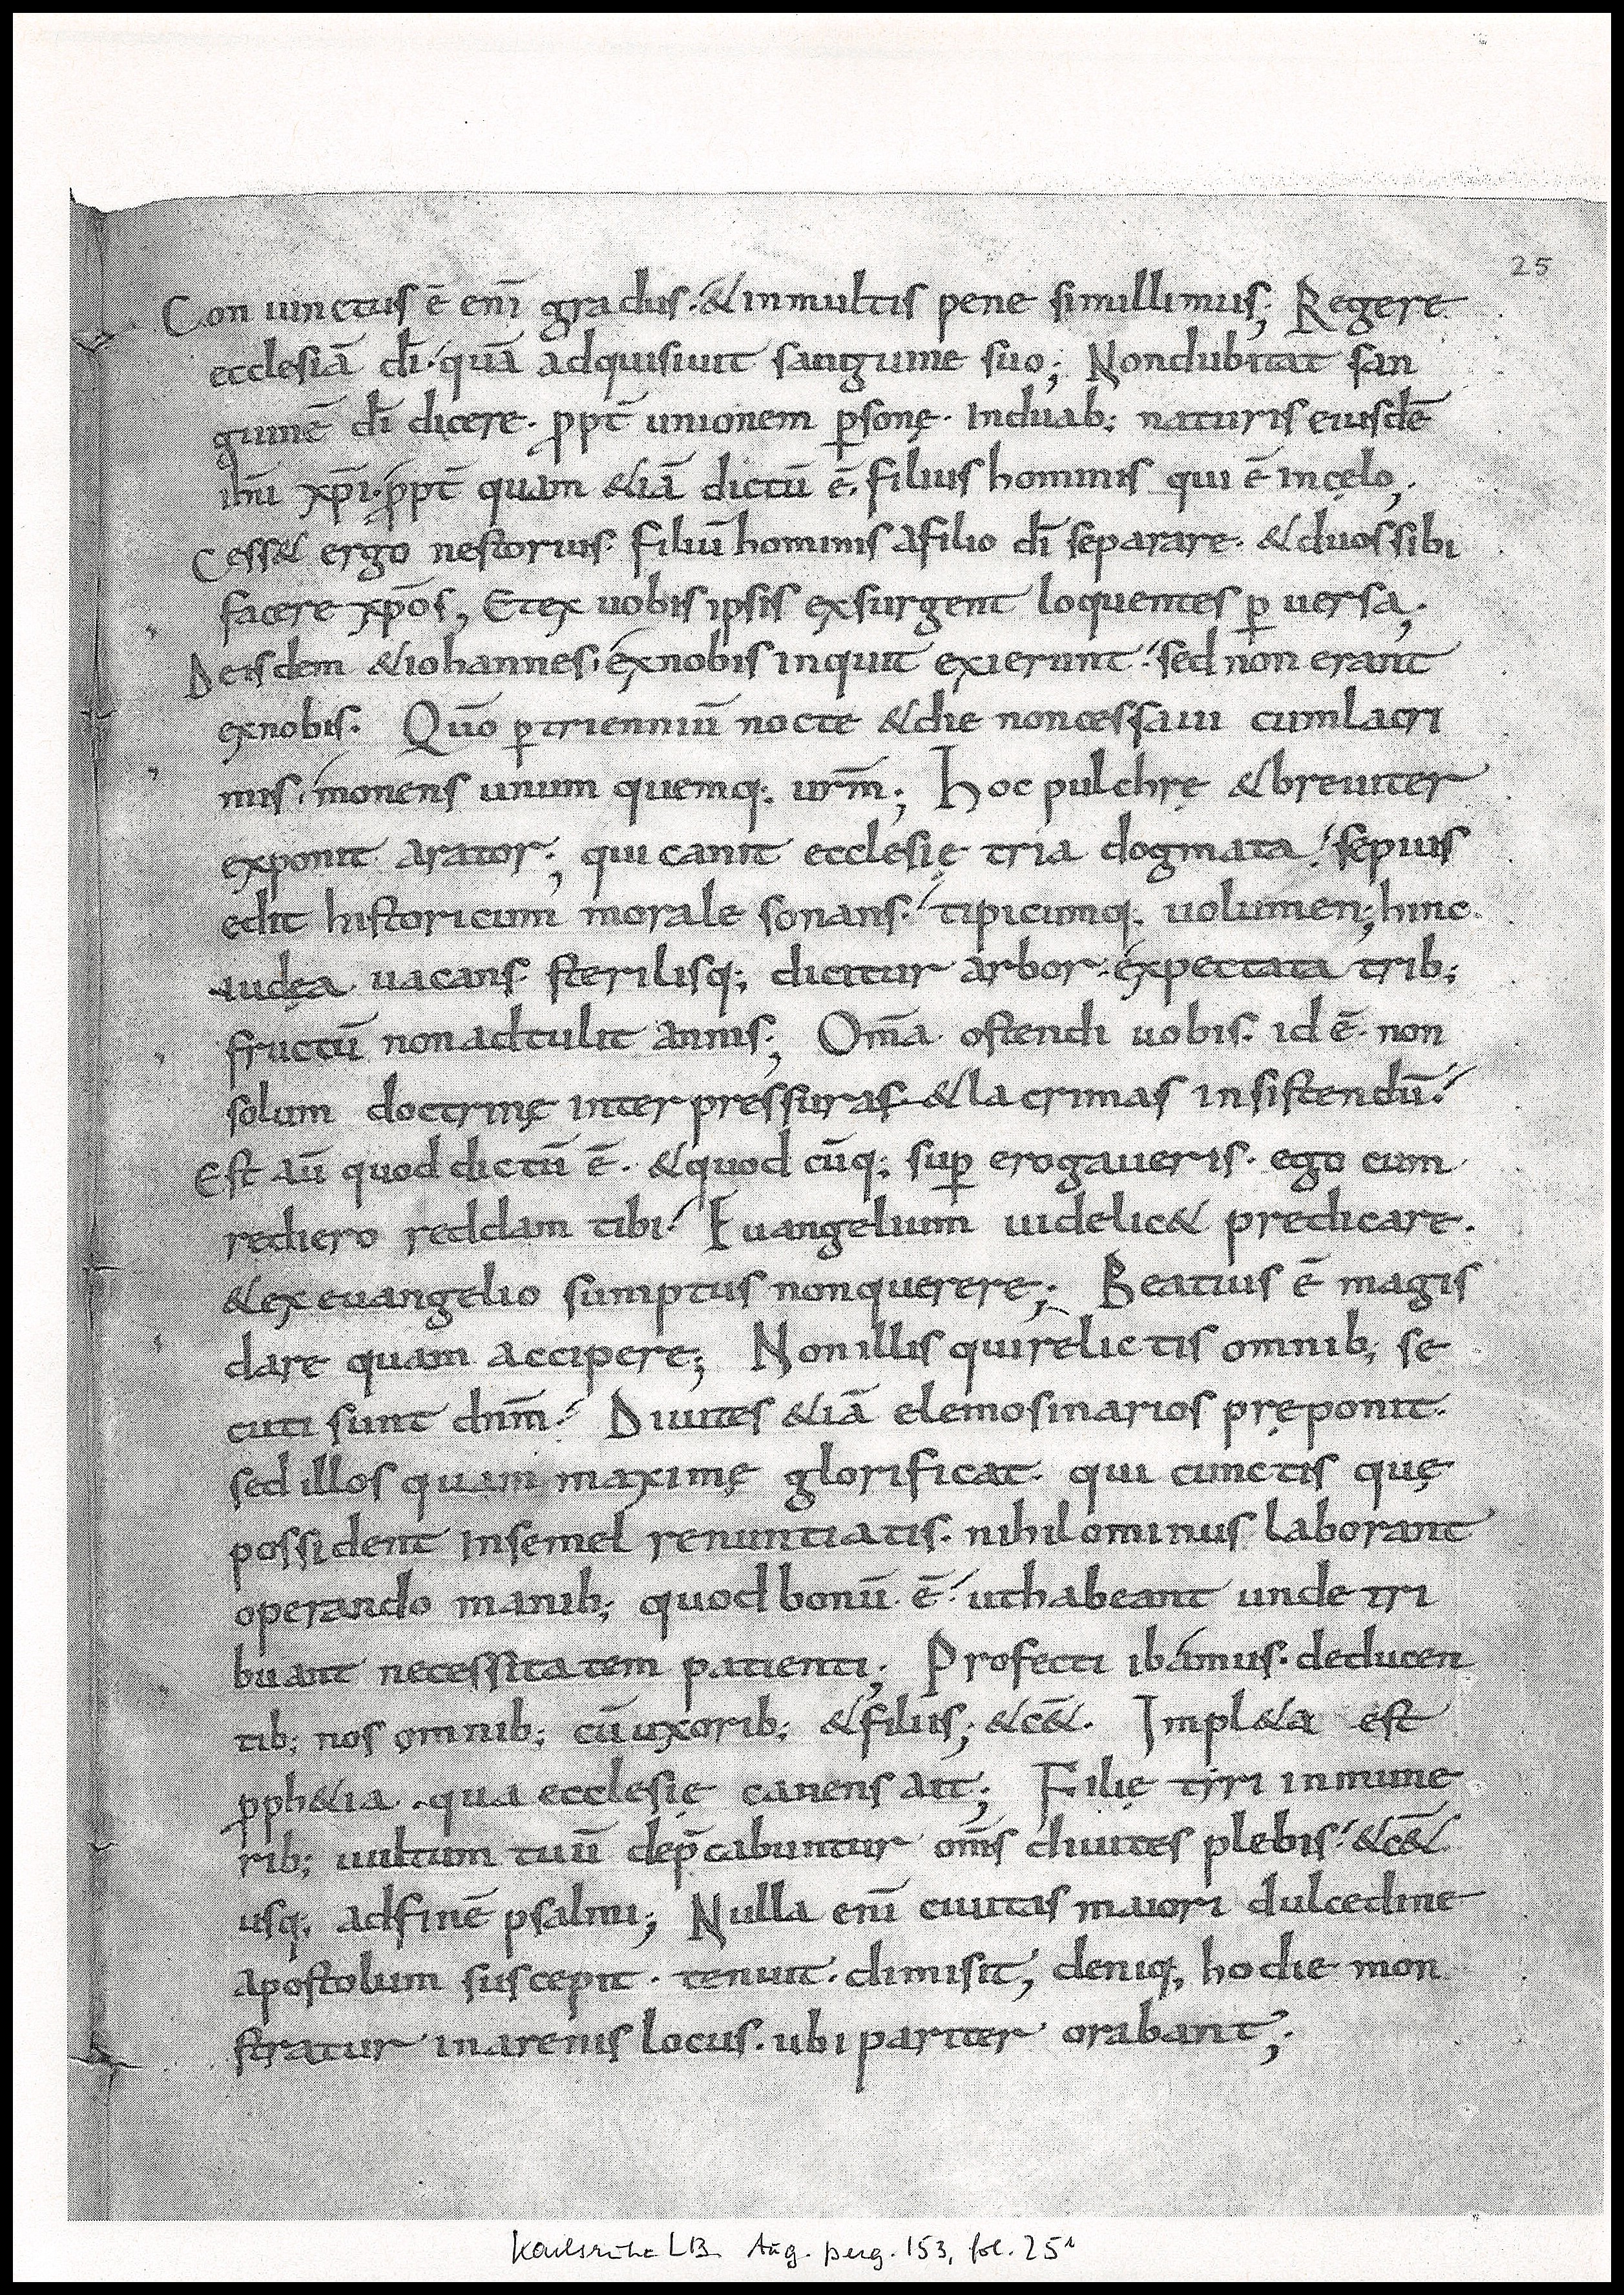 25
Con iunctus ē enī gradus· & inmultis pene simillimus; Regere
ecclesiā dī· quā adquisiuit sanguine suo; Nondubitat san
guinē dī dicere· ꝓpt̄ unionem ꝑsonę· Induab; naturis eiusdē
ihu xp̄i· ꝓpt̄ quam &iā dictū ē· filius hominis qui ē incęlo;
Cess& ergo nestorius· filiū hominis afilio dī separare· & duossibi
facere xp̄os, Etex uobis ipsis exsurgent loquentes ꝑ uersa;
Deisdem & iohannes· exnobis inquit exierunt· sed non erant
exnobis· Qūo ꝑtrienniū nocte & die noncessaui cumlacri
mis· monens unum quemq; ur̄m; Hoc pulchrę & breuiter
exponit arator; qui canit ecclesię tria dogmata· sepius
edit historicum morale sonans· tipicumq; uolumen; hinc
iudęa uacans sterilisq; dicitur arbor· expectata trib;
fructū non adtulit annis; Om̄a ostendi uobis· id ē· non
solum doctrinę inter pressuras & lacrimas insistendū·
Est aū quod dictū ē· & quod cūq; suꝑ erogaueris· ego cum
rediero reddam tibi· Euangelium uidelic& predicare·
& ex euangelio sumptus nonquerere; Beatius ē magis
dare quam accipere; Non illis quirelictis omnib; se
cuti sunt dn̄m· Diuites &iā elemosinarios pręponit·
sed illos quam maximę glorificat· qui cunctis quę
possident Insemel renuntiatis· nihilominus laborant
operando manib; quod bonū ē· uthabeant unde tri
buant necessitatem patienti; Profecti ibamus· deducen
tib; nos omnib; cū uxorib; & filiis; &c&· Impl&a est
ꝓph&ia· qua ecclesię canens ait; Filię tyri inmune
rib; uultum tuū dep̄cabuntur om̄s diuites plebis· &c&
usq; adfinē psalmi; Nulla enī ciuitas maiori dulcedine
apostolum suscepit· tenuit· dimisit, deniq; hodie mon
stratur inarenis locus· ubi pariter orabant;
Karlsruhe LB. Aug. perg. 153, fol. 25r